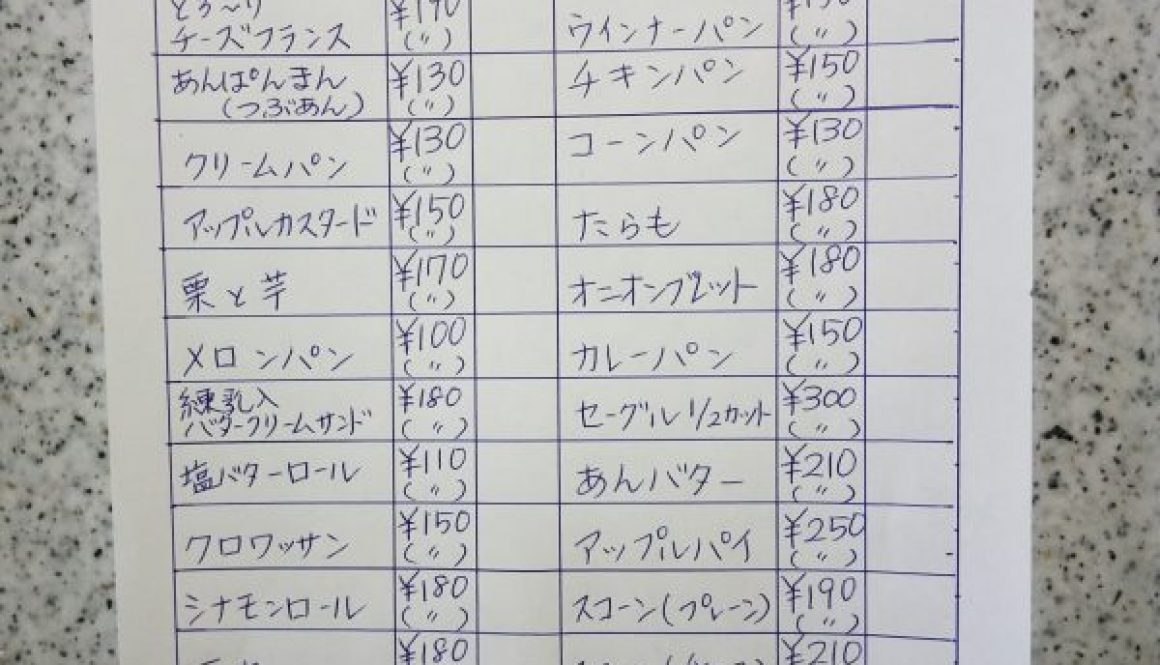 とろ〜り
チーズフランス ¥190
(〃)
ウインナーパン
(〃)
あんぱんまん
(つぶあん) ¥130
(〃)
チキンパン ¥150
(〃)
クリームパン ¥130
(〃)
コーンパン ¥130
(〃)
アップルカスタード ¥150
(〃)
たらも ¥180
(〃)
栗と芋 ¥170
(〃)
オニオンブレット ¥180
(〃)
メロンパン ¥100
(〃)
カレーパン ¥150
(〃)
練乳入
バタークリームサンド ¥180
(〃)
セーグル1/2カット ¥300
(〃)
塩バターロール ¥110
(〃)
あんバター ¥210
(〃)
クロワッサン ¥150
(〃)
アップルパイ ¥250
(〃)
シナモンロール ¥180
(〃)
スコーン(プレーン) ¥190
(〃)
¥180
¥210